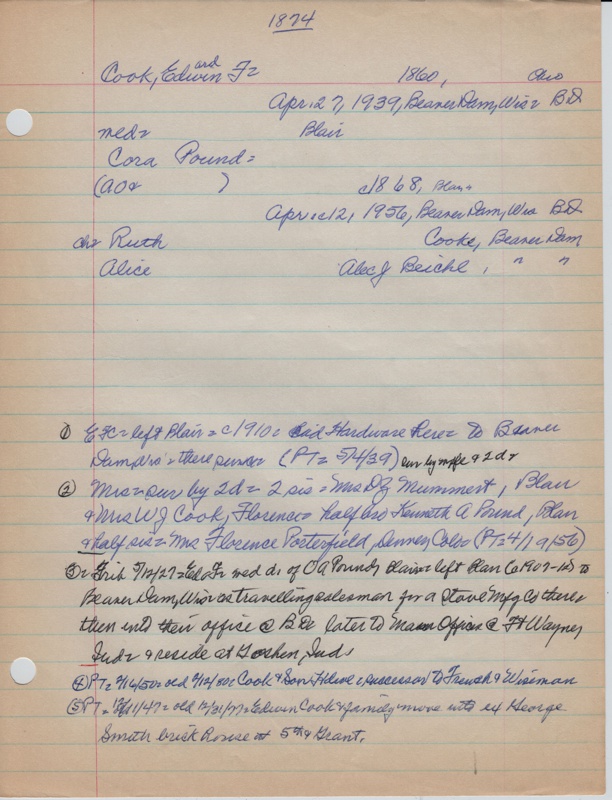 1874
Cook, Edwin F= 1860, Ohio
ard
Apr. 27, 1939, Beaver Dam, Wis= BD
med= Blair
Cora Pound=
(AO& ) c1868, Blair
Apr. c12, 1956, Beaver Dam, Wis BD
ch= Ruth Cooke, Beaver Dam
Alice Alec J Beichl, " "
① EFC= left Blair= c1910= Hardware here= to Beaver
Dam, Wis= there since (PT= 5/4/39) sur by wife & 2 d=
② Mrs= sur by 2d= 2 sis= Mrs DZ Mummert, Blair
& Mrs WJ Cook, Florence= half bro Kenneth A Pound, Blair
& half sis= Mrs Florence Porterfield, Denver, Colo= (PT= 4/19/56)
③= Trib 7/12/27= Ed F med d. of OA Pound, Blair= left Blair to
Beaver Dam, Wis= as travelling salesman for a Stove Mfg Co there=
then into their office @ BD later to Main Office @ Ft Wayne,
Ind= & reside at Goshen, Ind.
④ PT= 9/14/50= old Cook & Son, successor to French & Wiseman
⑤ PT= 12/11/47= old 12/21/77= Edwin Cook & family move into ex George
Smith brick house at 5th & Grant.